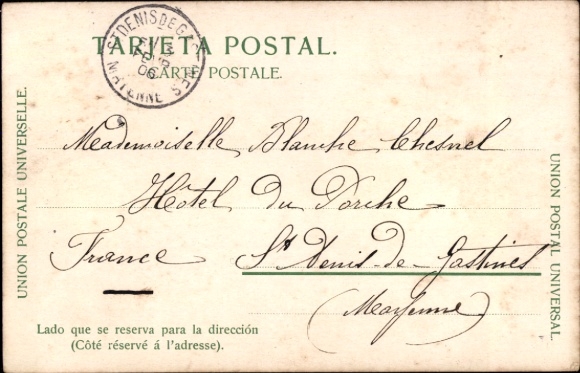 TARJETA POSTAL.
CARTE POSTALE.
ST DENIS DE G
MAYENNE
06
UNION POSTALE UNIVERSELLE.
Mademoiselle Blanche Chesnel
Hôtel du Porche
France St Denis-de-Gastines
(Mayenne)
UNION POSTAL UNIVERSAL.
Lado que se reserva para la dirección
(Côté réservé á l'adresse).